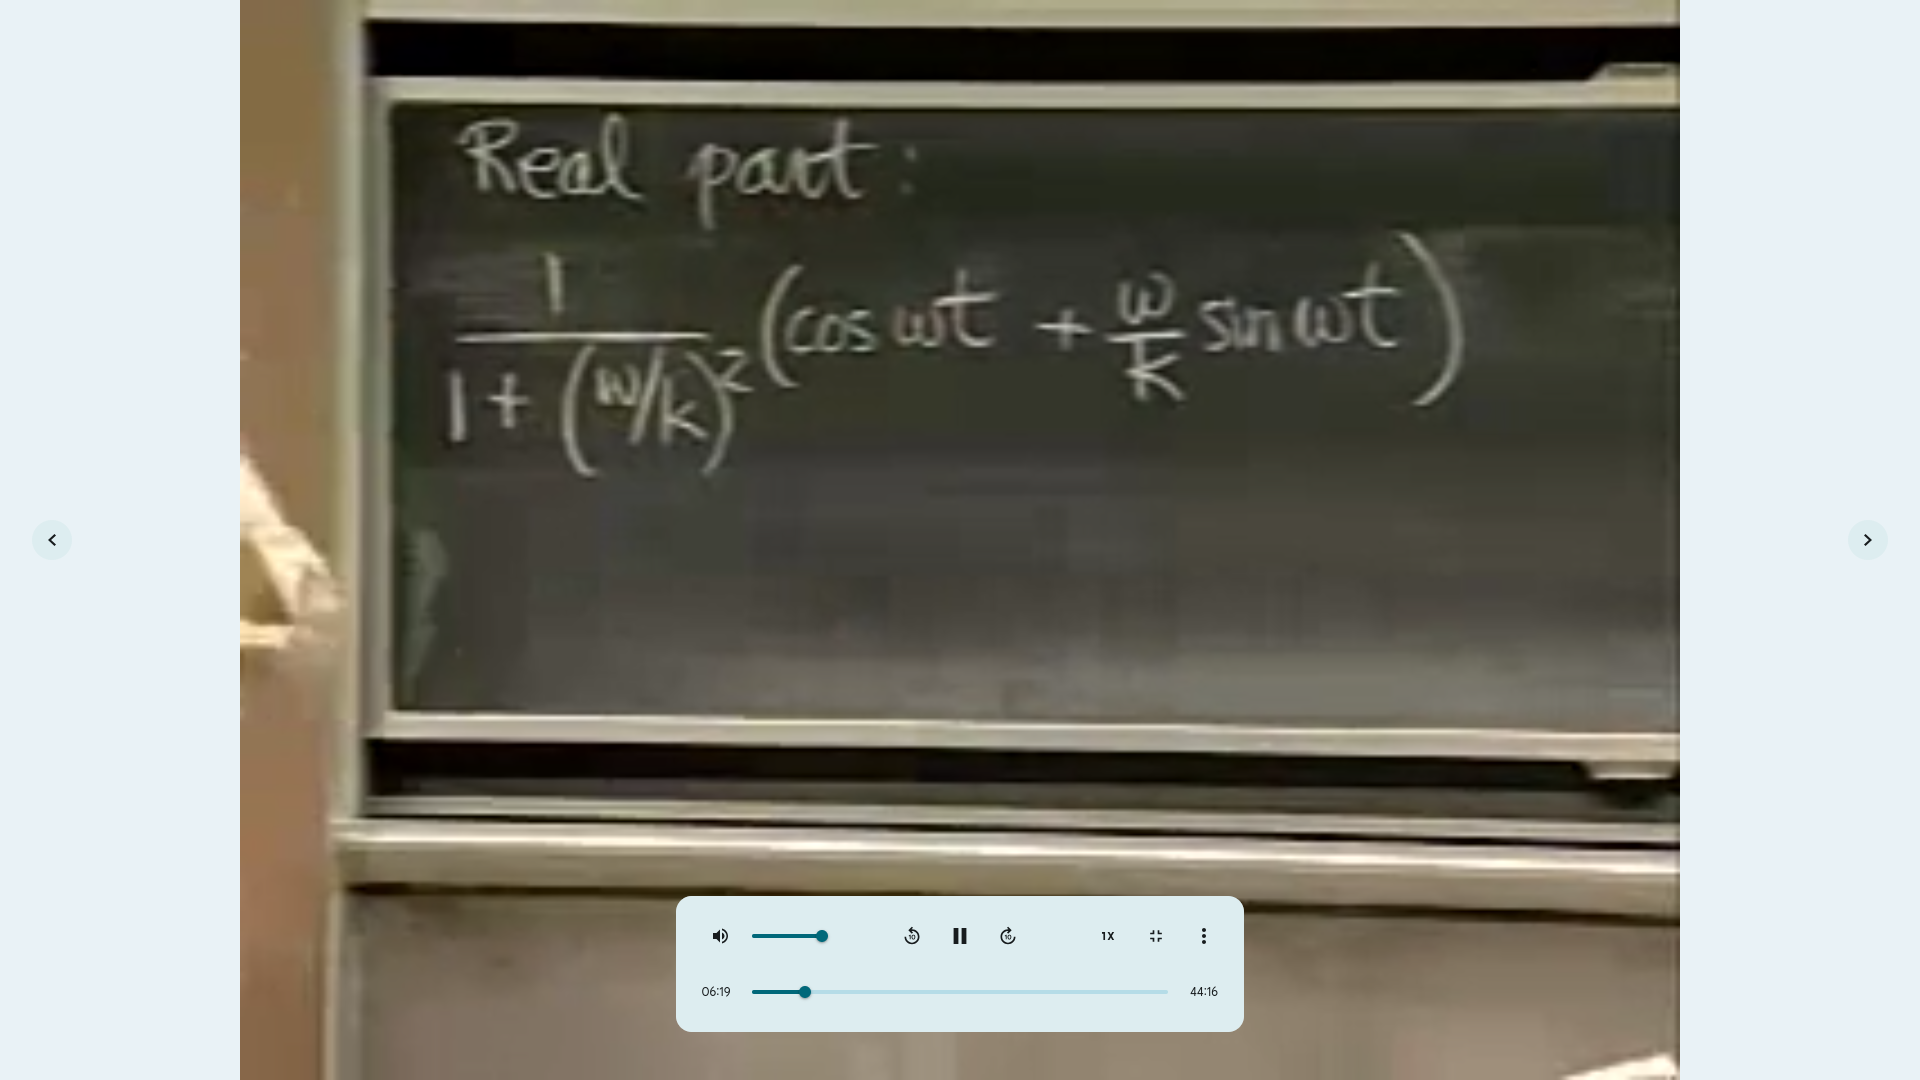 Real part:
1/(1 + (ω/k)²) (cos ωt + ω/k sin ωt)
10 10 1X
06:19 44:16